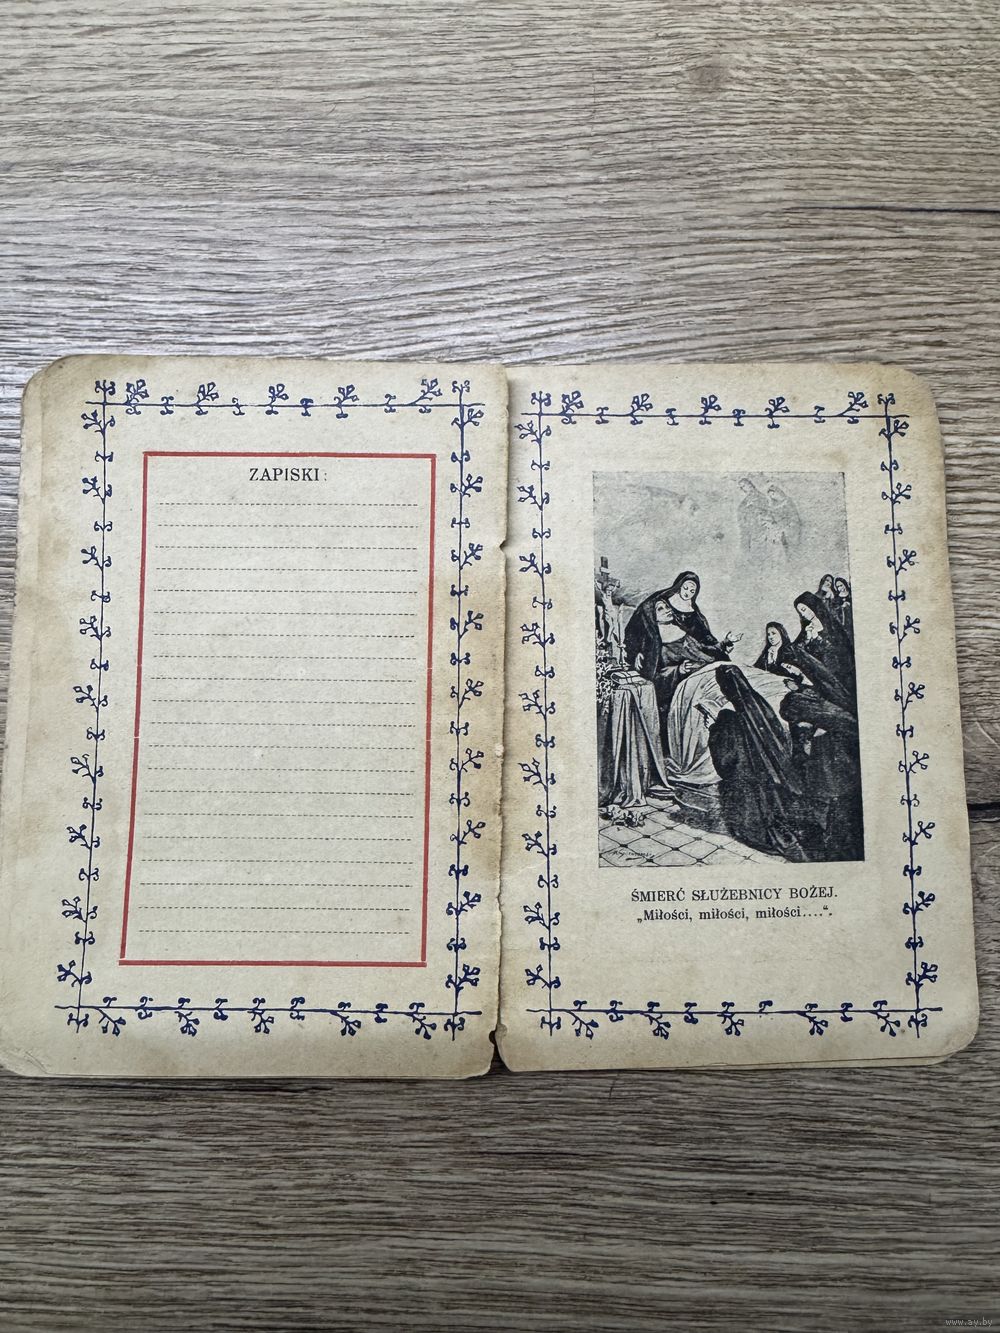 ZAPISKI:
ŚMIERĆ SŁUŻEBNICY BOŻEJ.
„Miłości, miłości, miłości....“.
www.ay.by